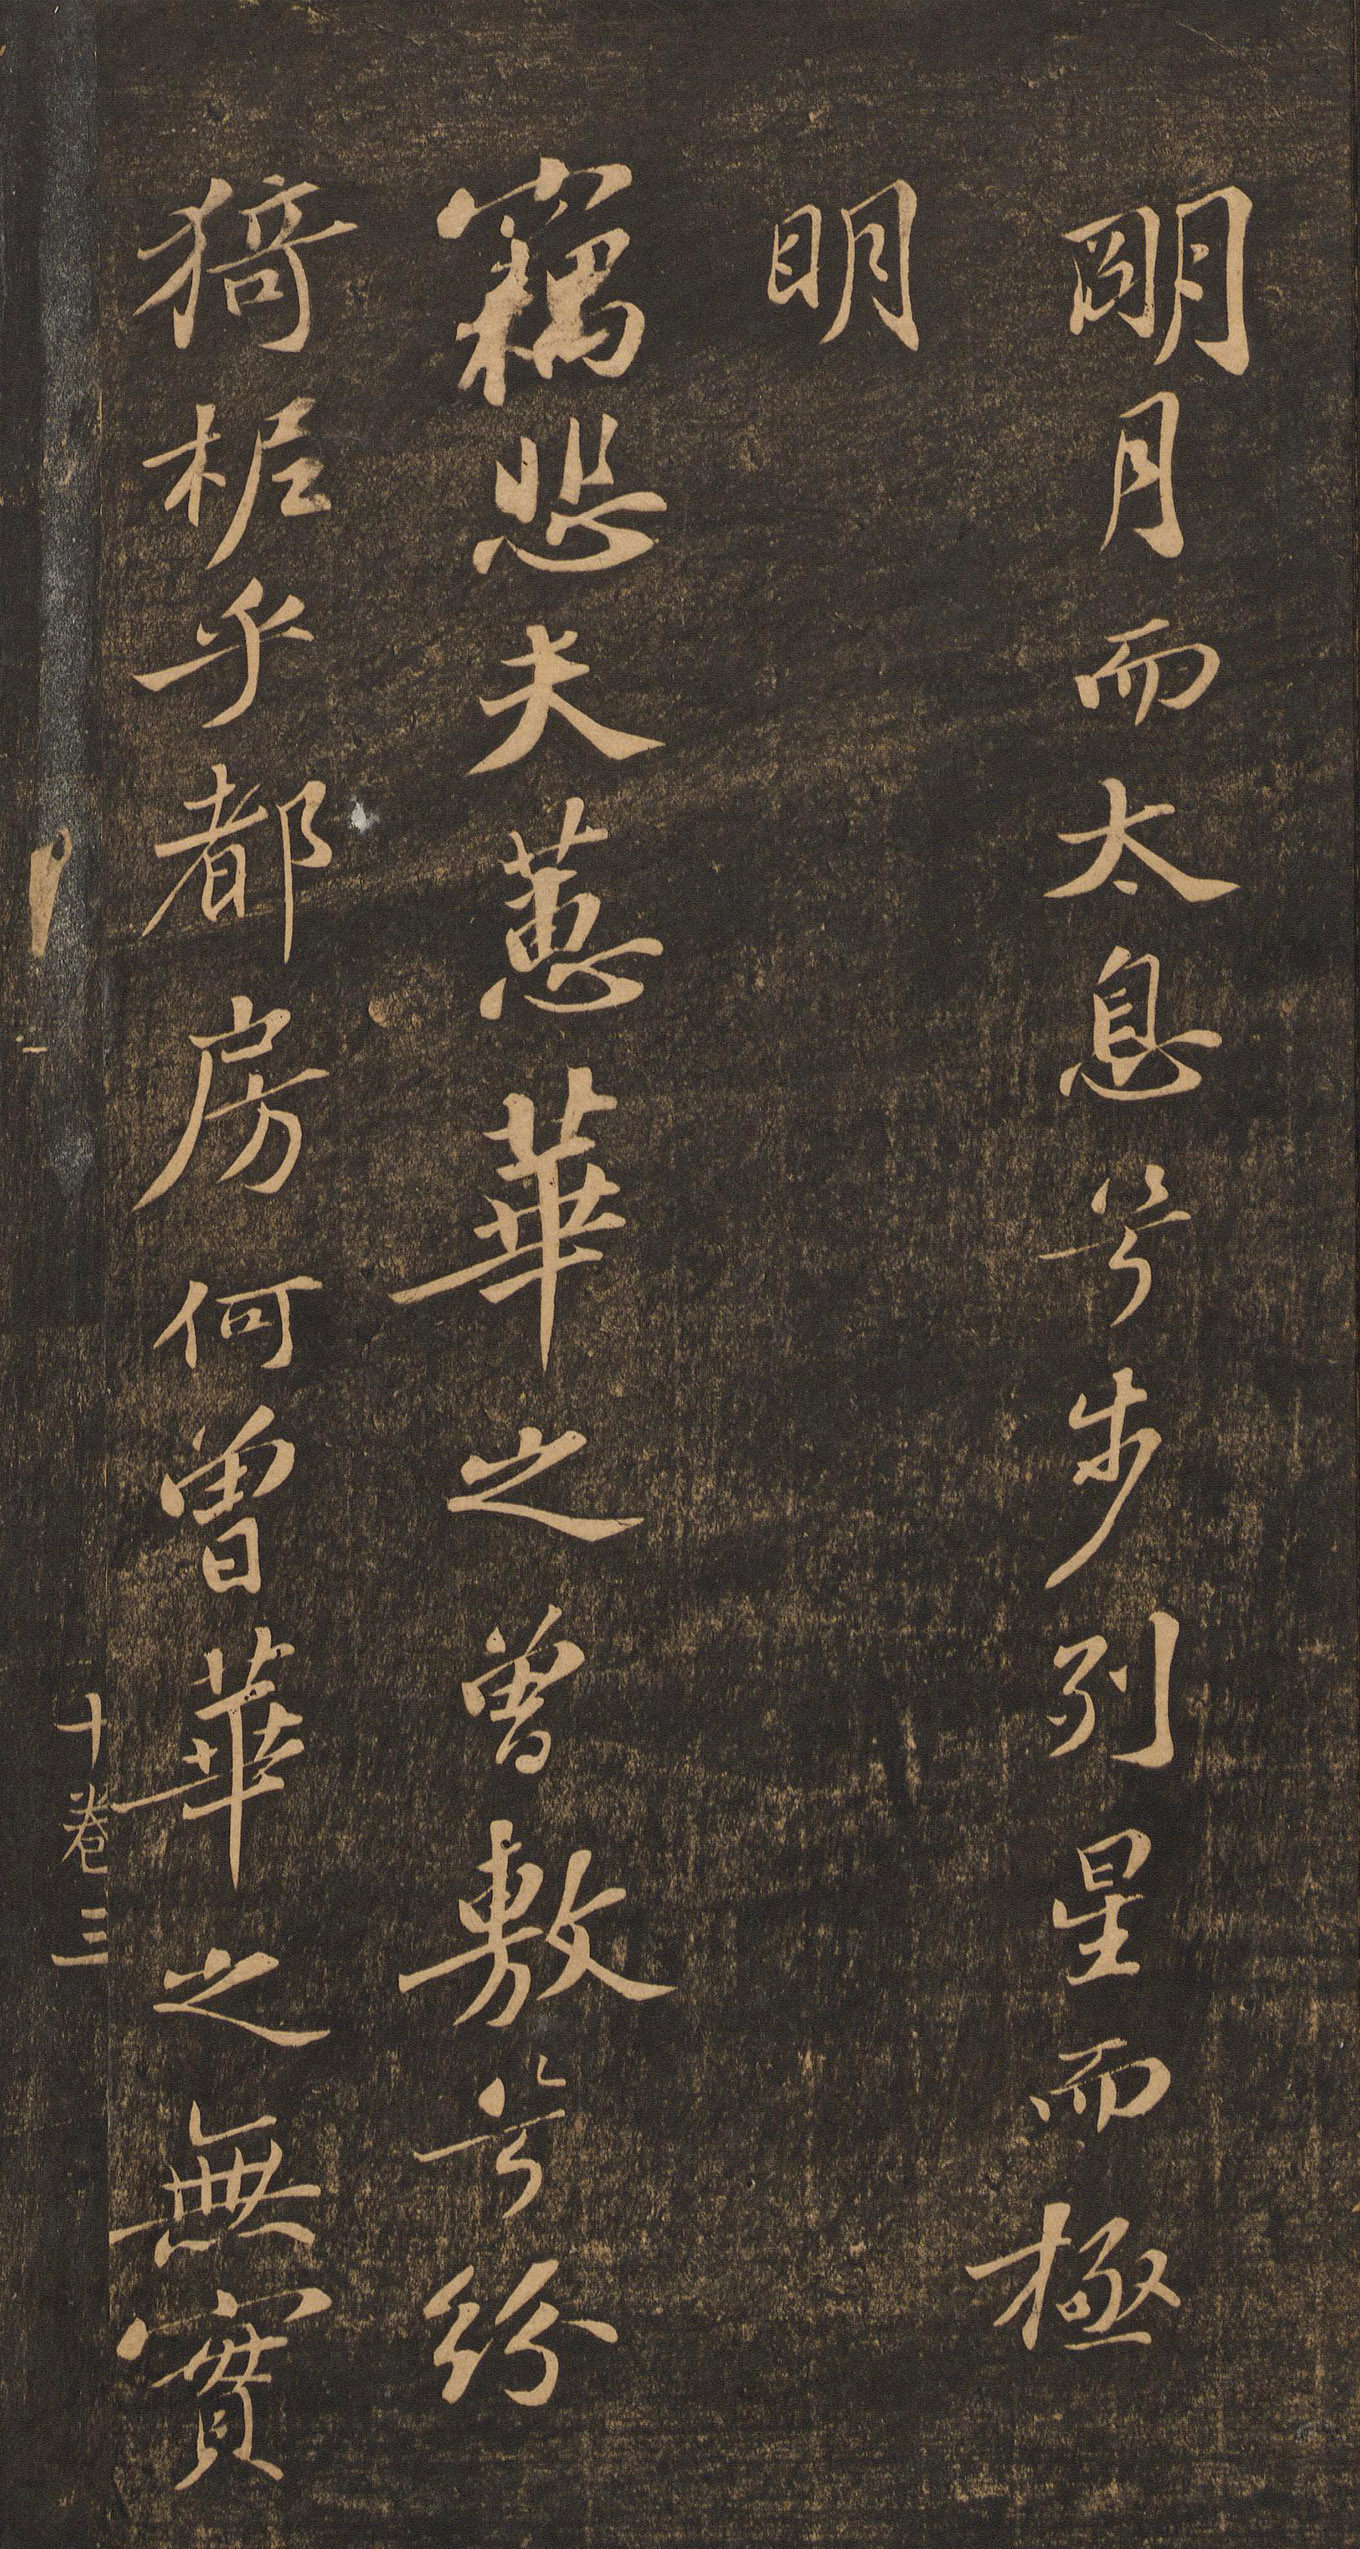 朙月而太息兮步列星而極
明
竊悲夫蕙華之曾敷兮紛
猗柅乎都房何曾華之無實
十卷三